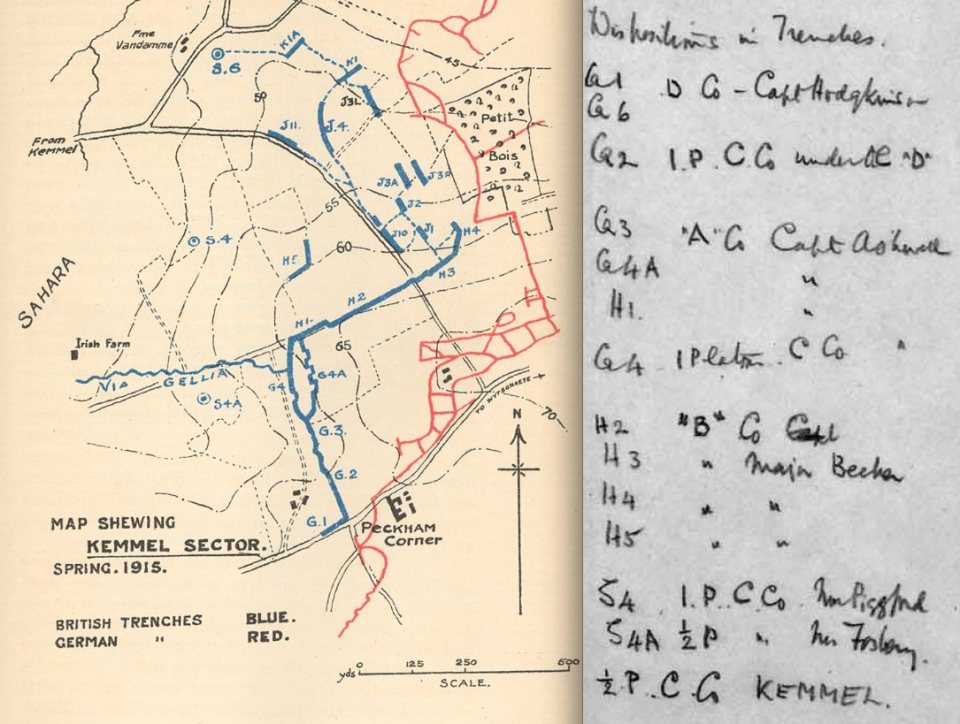 Fme
Vandamme
S.6
K1A
K1
45
50
J3L
J.4.
J11.
Petit
Bois
From
Kemmel
J3A
J3R
J2
55
J10
J1
H4
S.4
60
H5
H3
SAHARA
H2
H1.
65
Irish Farm
VIA GELLIA
G4
G4A
S4A
G.3.
TO WYTSCHAETE
70
N
G.2
G.1
PECKHAM
Corner
MAP SHEWING
KEMMEL SECTOR.
SPRING. 1915.
BRITISH TRENCHES BLUE.
GERMAN " RED.
yds 0 125 250 500
SCALE.
Dispositions in Trenches.
G1 D Co - Capt Hodgkinson
G6
G2 1. P. C Co under OC "D"
G3 "A" Co Capt Ashwell
G4A "
H1. "
G4 1 Platoon C Co "
H2 "B" Co
H3 " Major Becher
H4 " "
H5 " "
S4 1. P. C Co. Mr Piggford
S4A ½ P " Mr Fosbery.
½ P. C Co KEMMEL.